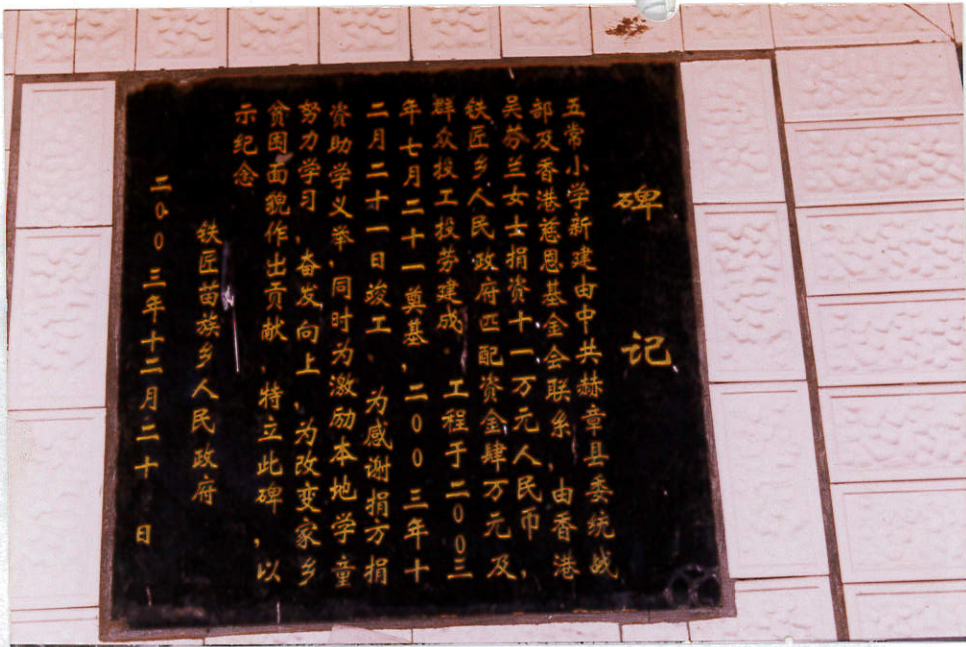 碑记
五常小学新建由中共赫章县委统战
部及香港慈恩基金会联系,由香港
吴芬兰女士捐资十一万元人民币,
铁匠乡人民政府匹配资金肆万元及
群众投工投劳建成。工程于二00三
年七月二十一奠基,二00三年十
二月二十一日竣工。为感谢捐方捐
资助学义举,同时为激励本地学童
努力学习,奋发向上,为改变家乡
贫困面貌作出贡献,特立此碑,以
示纪念
铁匠苗族乡人民政府
二00三年十二月二十 日